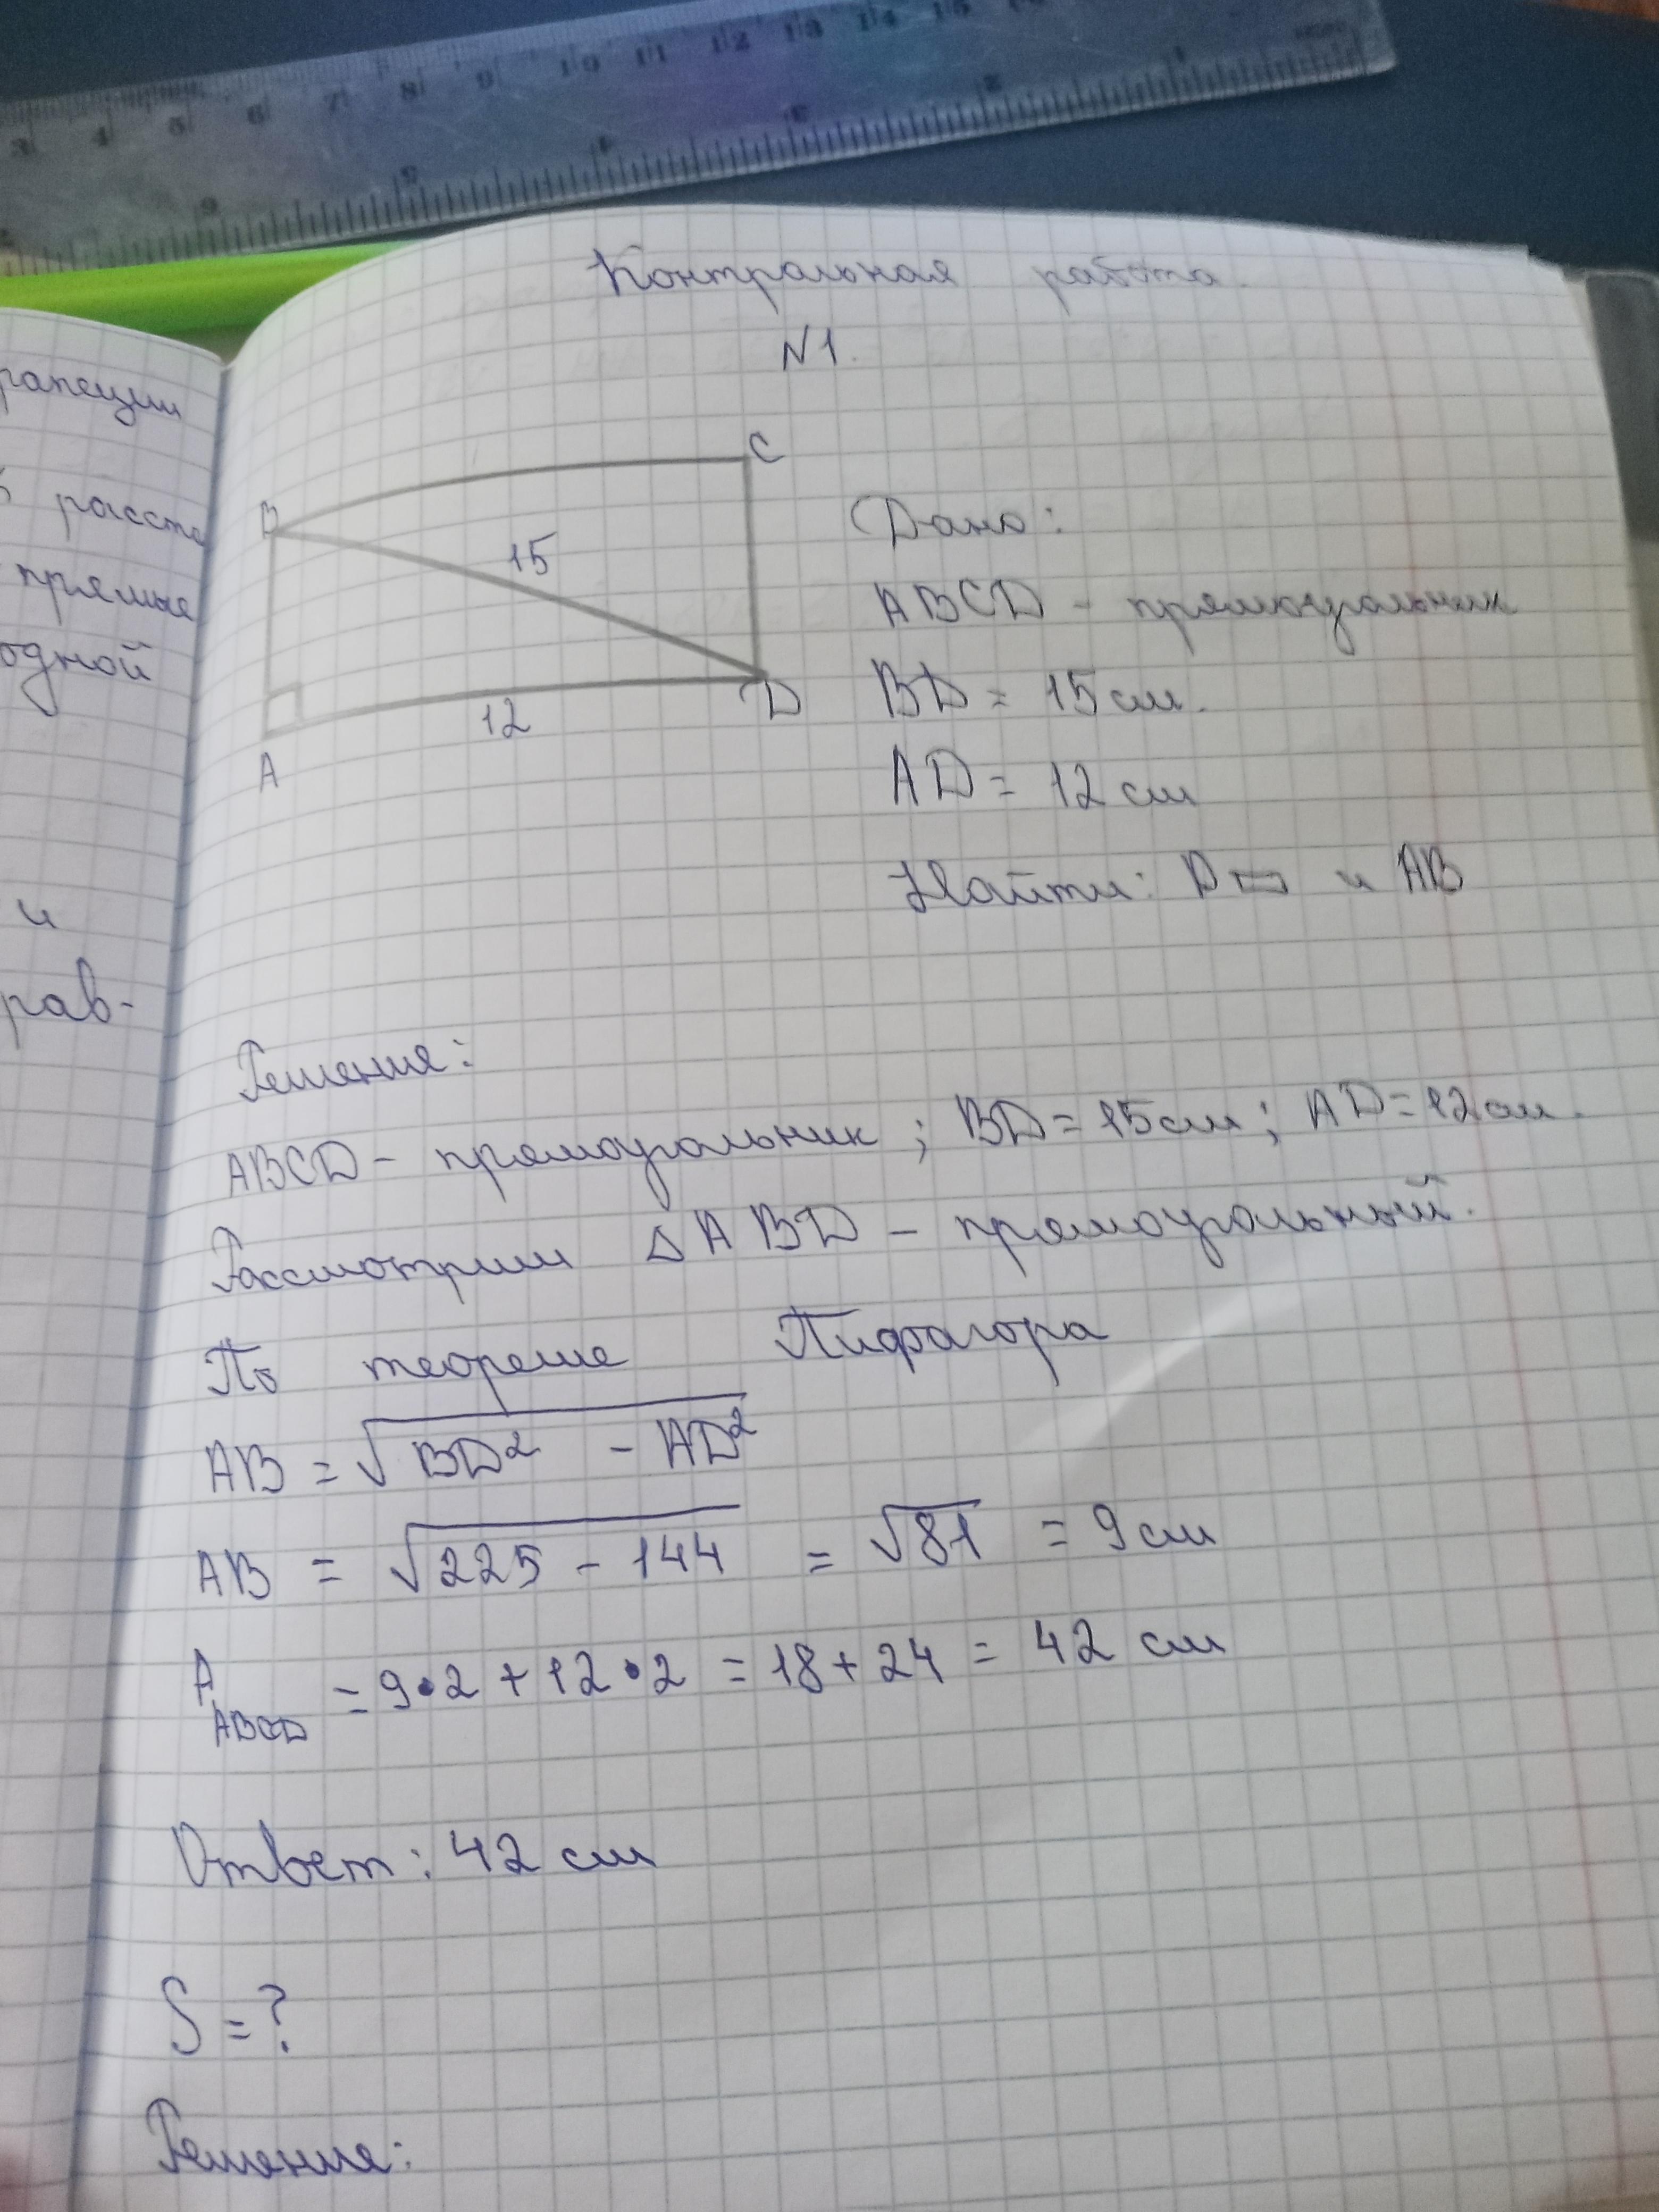 3 4 5 6 7 8 9 10 11 12 13 14 15
6 5 4 3 2 1
рапеции
расст
прямые
одной
и
рав-
Контрольная работа.
N1.
B
C
15
12
A
D
Дано:
ABCD - прямоугольник
BD = 15 см.
AD = 12 см
Найти: P▭ и AB
Решения:
ABCD - прямоугольник ; BD = 15см ; AD = 12см.
Рассмотрим △ABD - прямоугольный.
По теореме Пифагора
AB = √BD² - AD²
AB = √225 - 144 = √81 = 9 см
P ABCD = 9•2 + 12•2 = 18 + 24 = 42 см
Ответ: 42 см
S = ?
Решение: